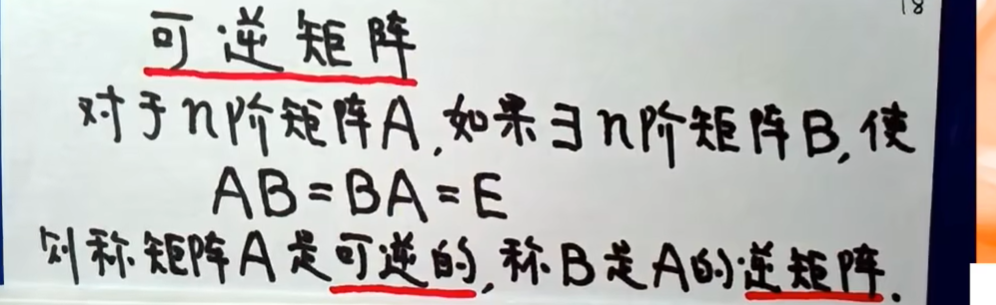 18
可逆矩阵
对于n阶矩阵A,如果∃n阶矩阵B,使
AB=BA=E
则称矩阵A是可逆的,称B是A的逆矩阵.